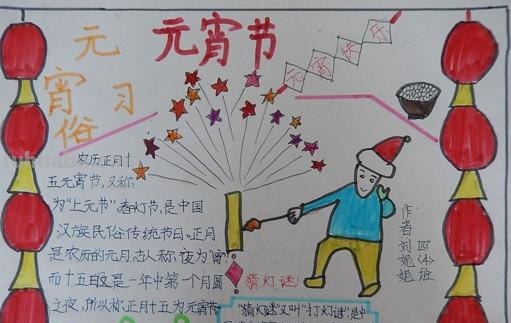 元宵节
元宵习俗
元宵快乐
农历正月十
五元宵节,又称
为“上元节”春灯节,是中国
汉族民俗传统节日。正月
是农历的元月,古人称夜为“宵”
而十五日又是一年中第一个月圆
之夜,所以称正月十五为元宵节
猜灯谜
“猜灯谜”又叫“打灯谜”是中
四(4)班
作者刘妮妮